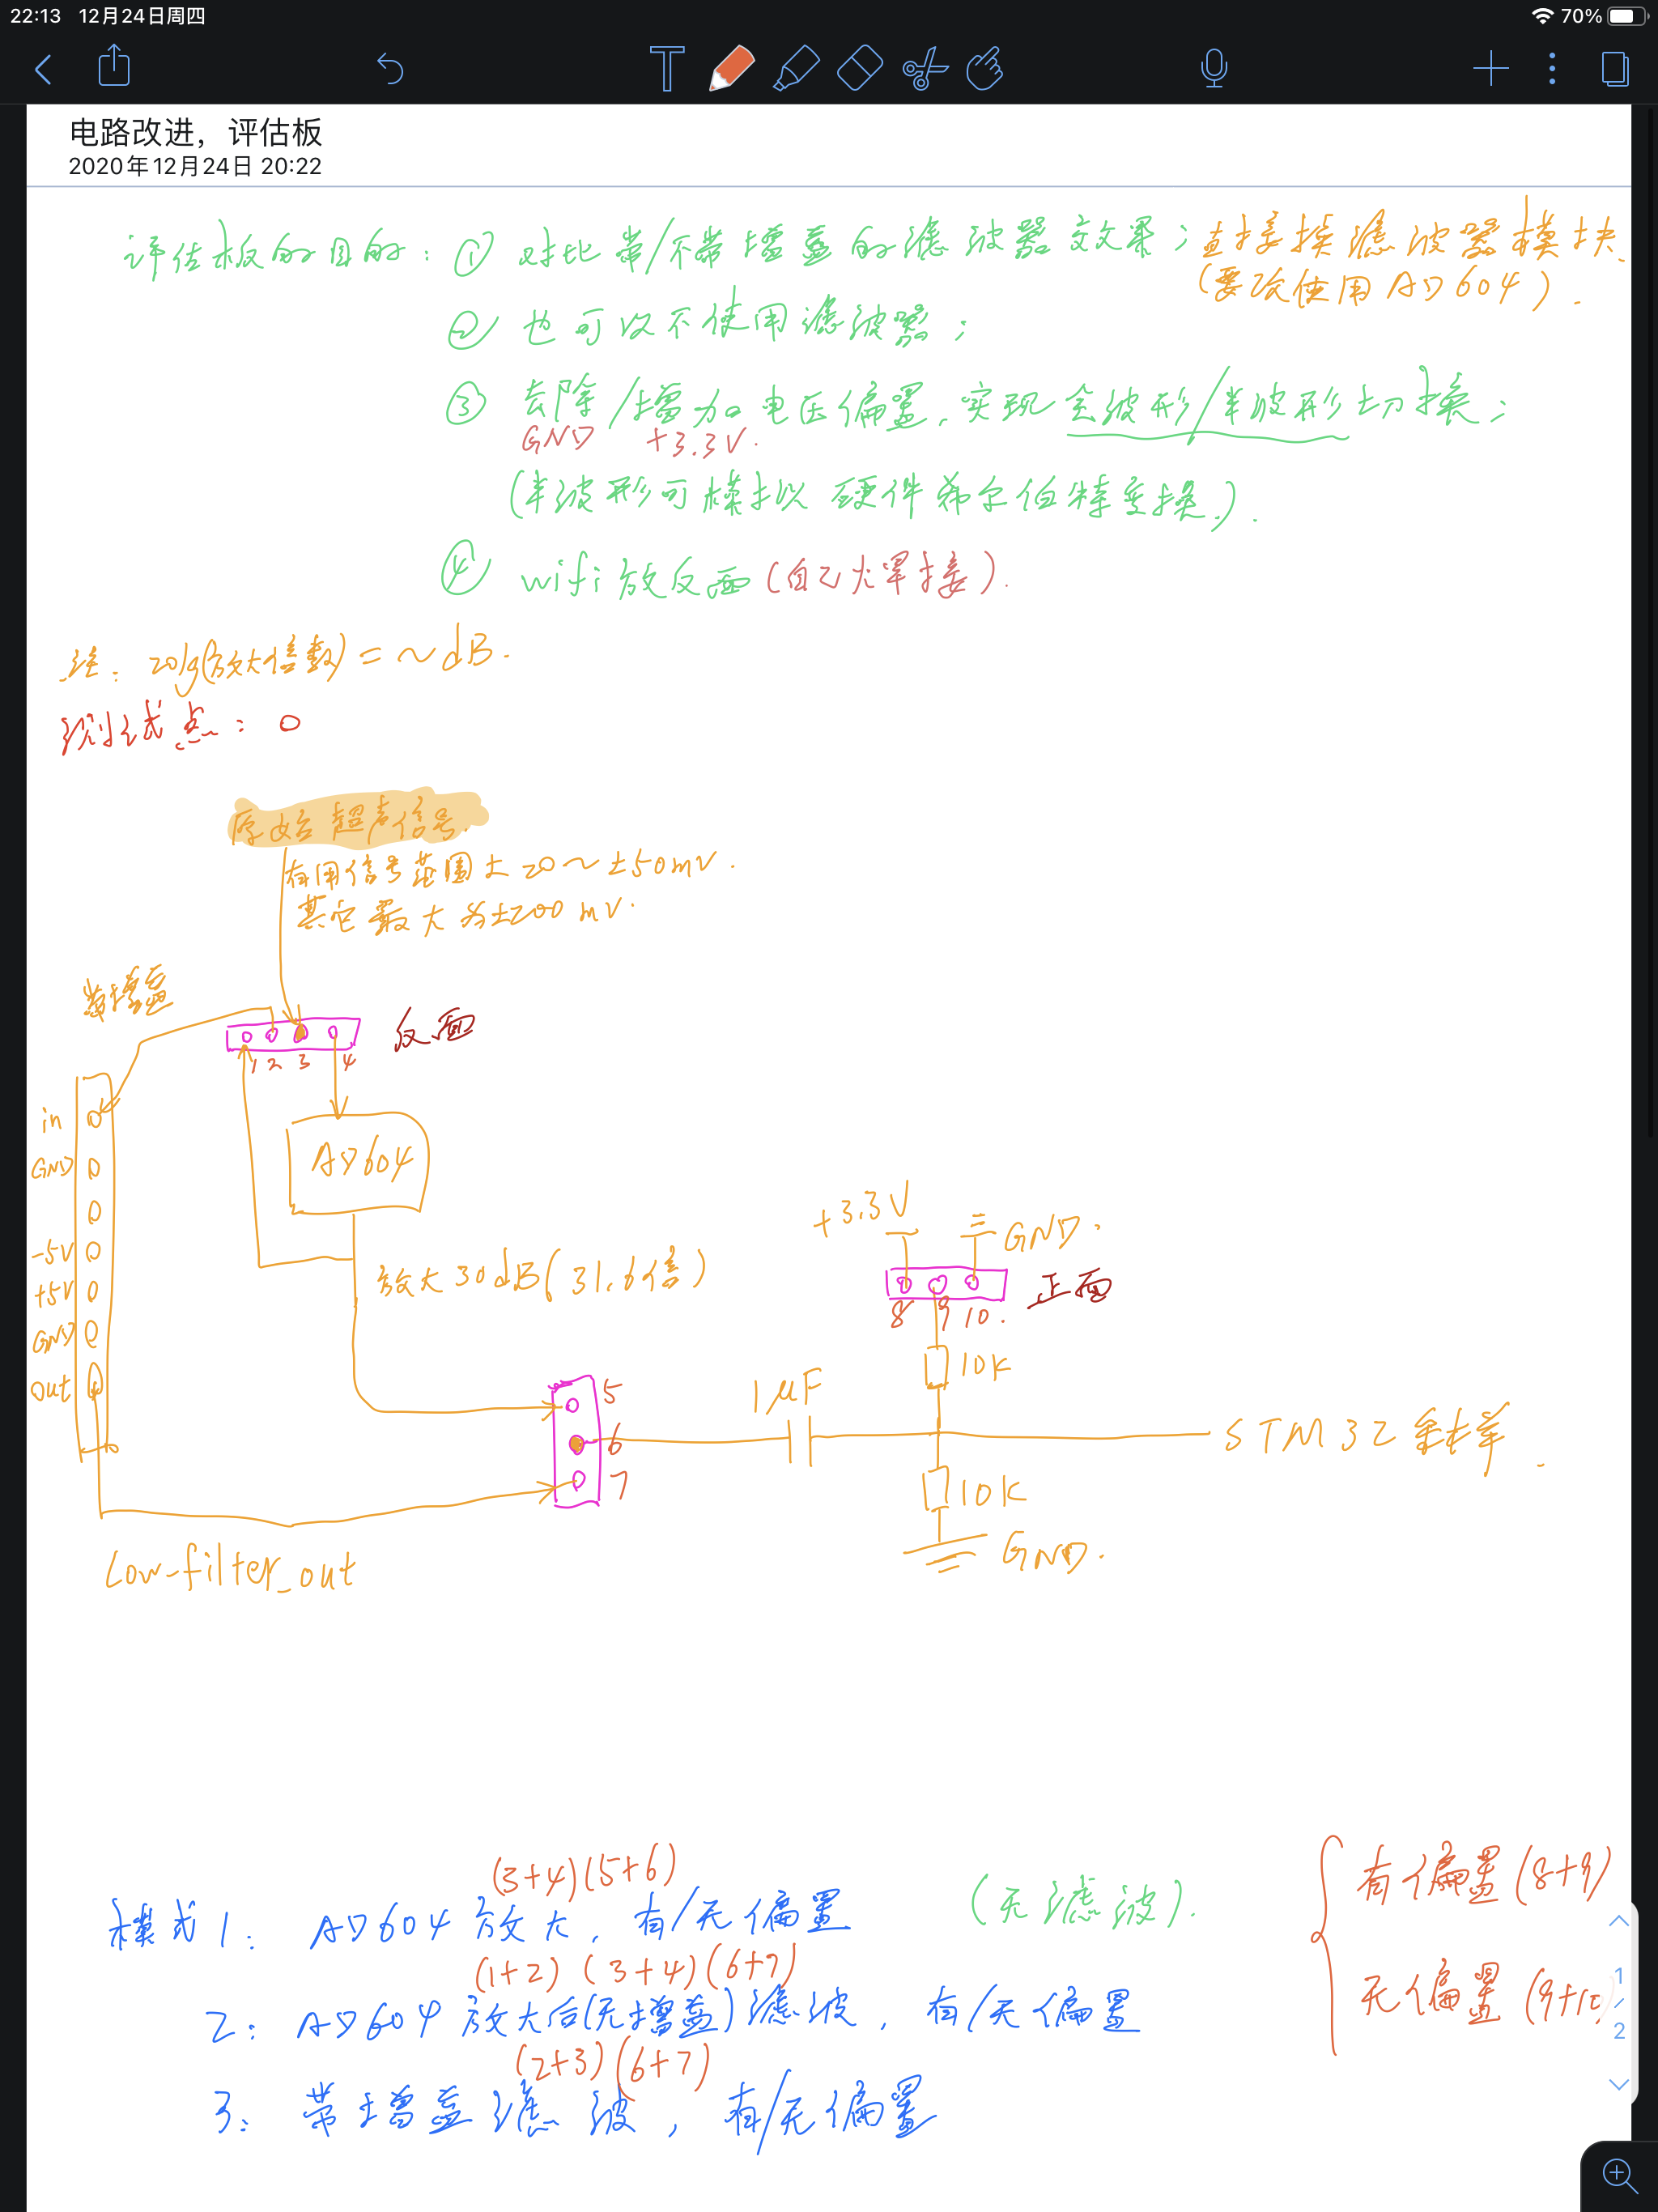 22:13 12月24日周四
70%
电路改进，评估板
2020年12月24日 20:22
评估板的目的：① 对比带/不带增益的滤波器效果；直接换滤波器模块.
(要改使用AD604).
② 也可以不使用滤波器；
③ 去除/增加电压偏置，实现全波形/半波形切换；
GND +3.3V.
(半波形可模拟硬件希尔伯特变换.).
④ wifi放反面(自己焊接).
注：20lg(放大倍数)=~dB.
测试点：0
原始超声信号.
有用信号范围±20~±50mV.
其它最大为±200mV.
带增益
反面
1 2 3 4
in
GND
-5V
+5V
GND
out
AD604
放大30dB(31.6倍)
+3.3V
GND.
正面
8 9 10.
10K
1μF
5
6
7
STM32采样.
10K
GND.
Low-filter_out
(3+4)(5+6)
模式1： AD604放大，有/无偏置 (无滤波).
有偏置(8+9)
(1+2) (3+4)(6+7)
2： AD604放大后(无增益)滤波，有/无偏置
无偏置(9+10)
(2+3)(6+7)
3： 带增益滤波，有/无偏置
1
/
2